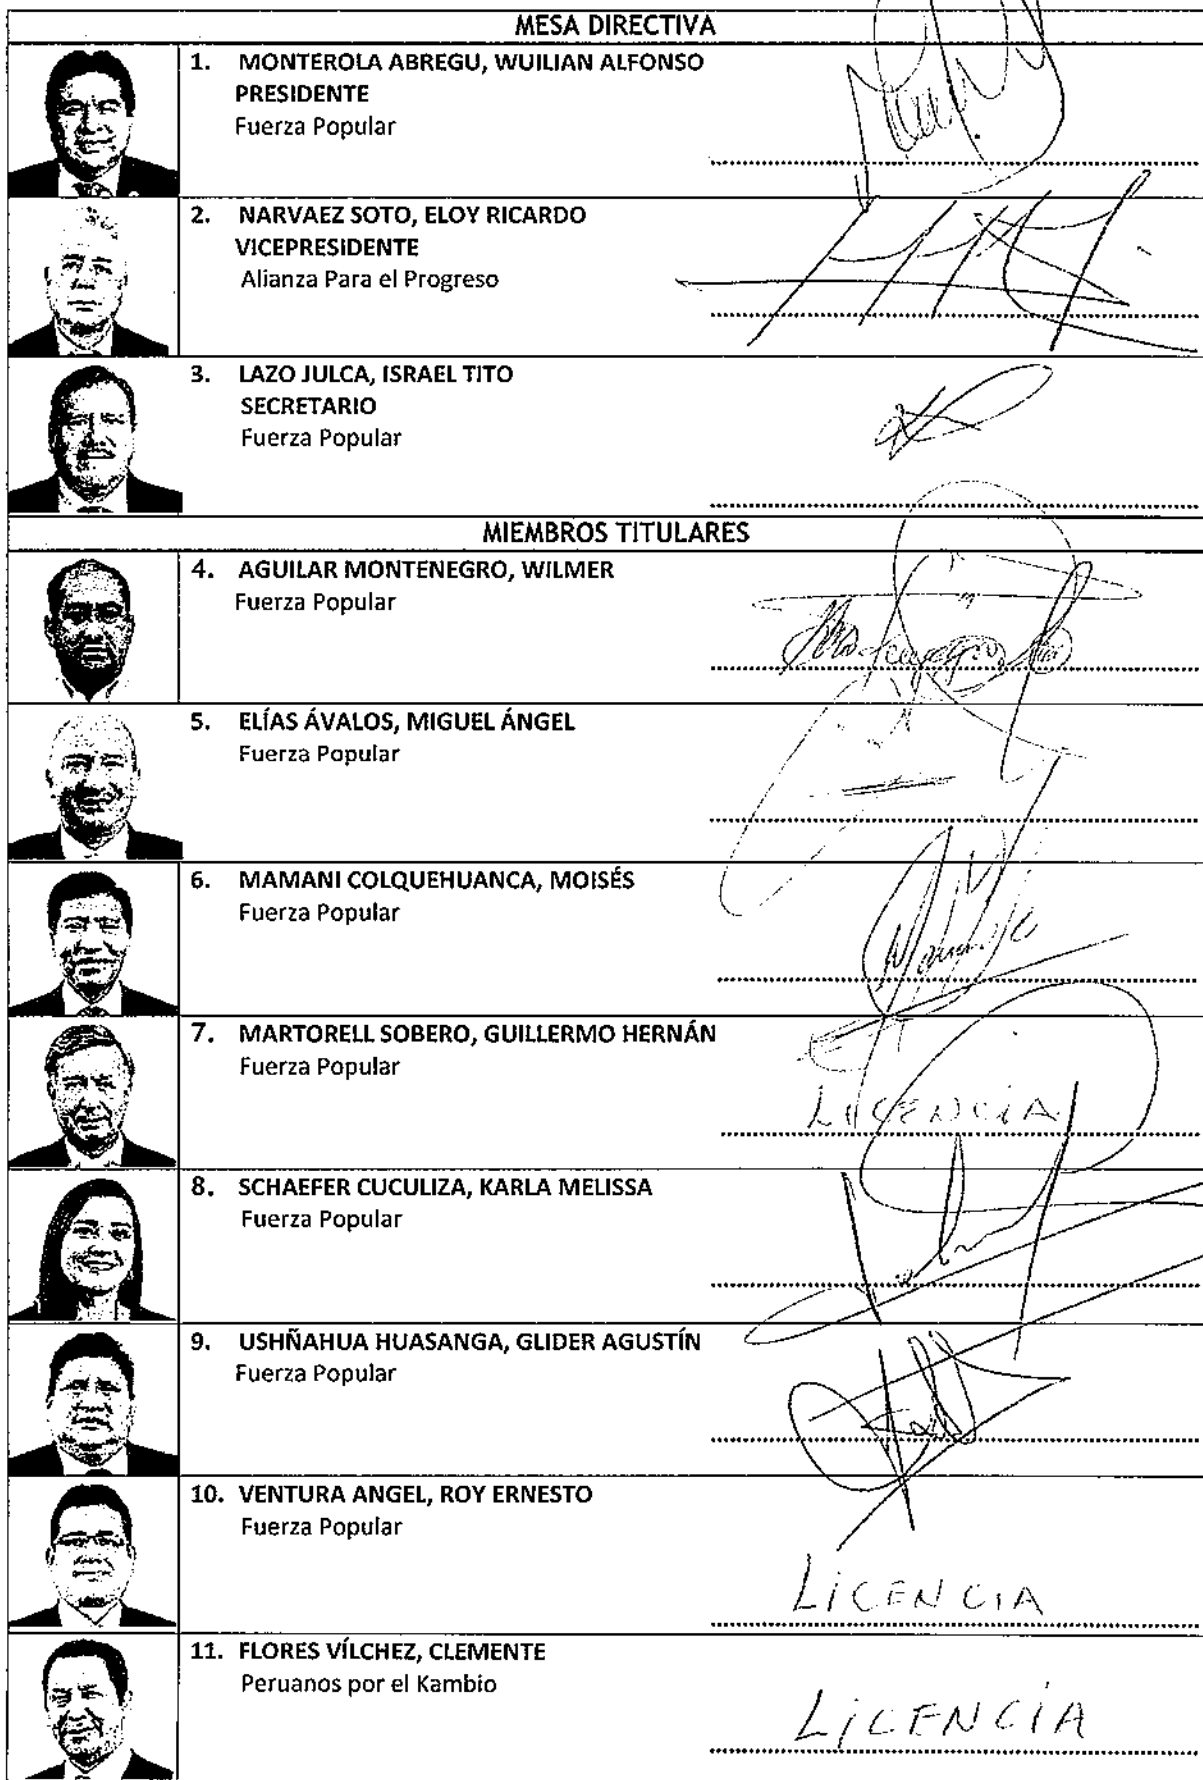 MESA DIRECTIVA
1. MONTEROLA ABREGU, WUILIAN ALFONSO
PRESIDENTE
Fuerza Popular
2. NARVAEZ SOTO, ELOY RICARDO
VICEPRESIDENTE
Alianza Para el Progreso
3. LAZO JULCA, ISRAEL TITO
SECRETARIO
Fuerza Popular
MIEMBROS TITULARES
4. AGUILAR MONTENEGRO, WILMER
Fuerza Popular
5. ELÍAS ÁVALOS, MIGUEL ÁNGEL
Fuerza Popular
6. MAMANI COLQUEHUANCA, MOISÉS
Fuerza Popular
7. MARTORELL SOBERO, GUILLERMO HERNÁN
Fuerza Popular
LICENCIA
8. SCHAEFER CUCULIZA, KARLA MELISSA
Fuerza Popular
9. USHÑAHUA HUASANGA, GLIDER AGUSTÍN
Fuerza Popular
10. VENTURA ANGEL, ROY ERNESTO
Fuerza Popular
LICENCIA
11. FLORES VÍLCHEZ, CLEMENTE
Peruanos por el Kambio
LICENCIA